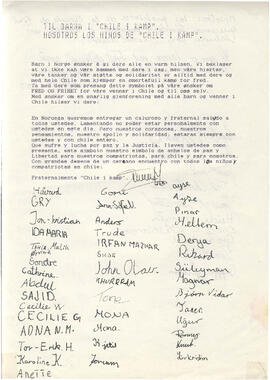 TIL BARNA I "CHILE I KAMP".
NOSOTROS LOS NIÑOS DE "CHILE I KAMP".
Barn i Norge ønsker å gi dere alle en varm hilsen. Vi be-
klager at vi ikke kan være sammen med dere i dag, men våre hjerter,
våre tanker og vår støtte og solidaritet er alltid med dere og
med hele Chile som kjemper en smertefull kamp for fred.
Ta med dere som presang dette symbolet på våre ønsker om
FRED OG FRIHET for våre venner i Chile og for dem selv.
Med ønsker om en snarlig gjenforening med alle barn og venner i
Chile hilser vi dere.
En Noruega queremos entregar un caluroso y fraternal saludo a
todos ustedes. Lamentando no poder estar personalmente con
ustedes en este dia. Pero nuestros corazones, nuestros
pensamientos, nuestro apoyo y solidaridad, estaran siempre con
ustedes y con todo Chile.
Que sufre y lucha por paz y la Justicia. Lleven ustedes como
presente, este simbolo nuestro simbolo de anhelos de paz y
Libertad para nuestros compatriotas, para chile y para nosotros.
Con grandes deseos de un cercano encuentro con todos los niños y
compatriotas en chile:
Fraternalmente "Chile i kamp".
Håvard Gone Ayse
GRY
Jon-Kristian Anders Pinar
IDA MARIA Trude Meltem
IRFAN MAZHAR Derya
Sondre Rikard
Cathrine John Olav Süleyman
Abdul KHURRAM
SAJID Tone Bjørn Vidar
Cecilie W
CECILIE G MONA Ugur
ADNA N.M. Mona
Tor-Erik H. Knut
Karoline K
Anette